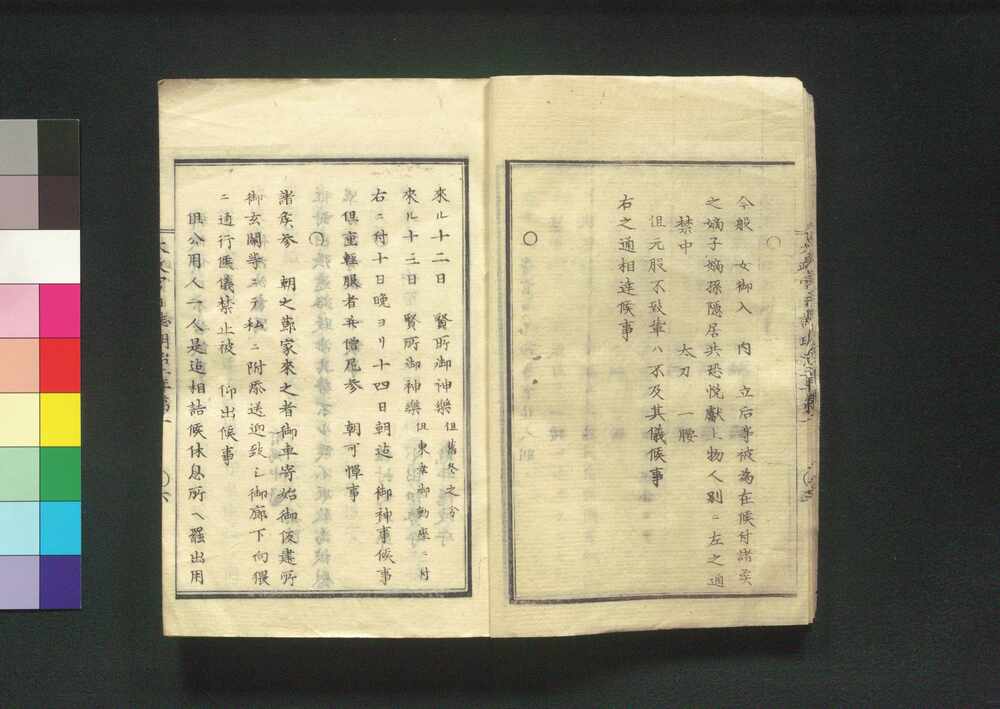 ○
今般　女御入　内　立后等被為在候付諸矦
之嫡子嫡孫隠居共恐悦献上物人別ニ左之通
禁中　　太刀　一腰
但元服不致輩ハ不及其儀候事
右之通相達候事
○
來ル十二日　賢所御神樂但舊冬之分
來ル十三日賢所御神樂但東幸御動座ニ付
右ニ付十日晩ヨリ十四日朝迠　御神事候事
但重輕服者并僧尼参　朝可憚事
○
諸矦参　朝之節家來之者御車寄始御仮建所
御玄関等ニテ私ニ附添送迎致シ御廊下向猥
ニ通行候儀禁止被　仰出候事
但公用人一人是迠相詰候休息所ヘ罷出用